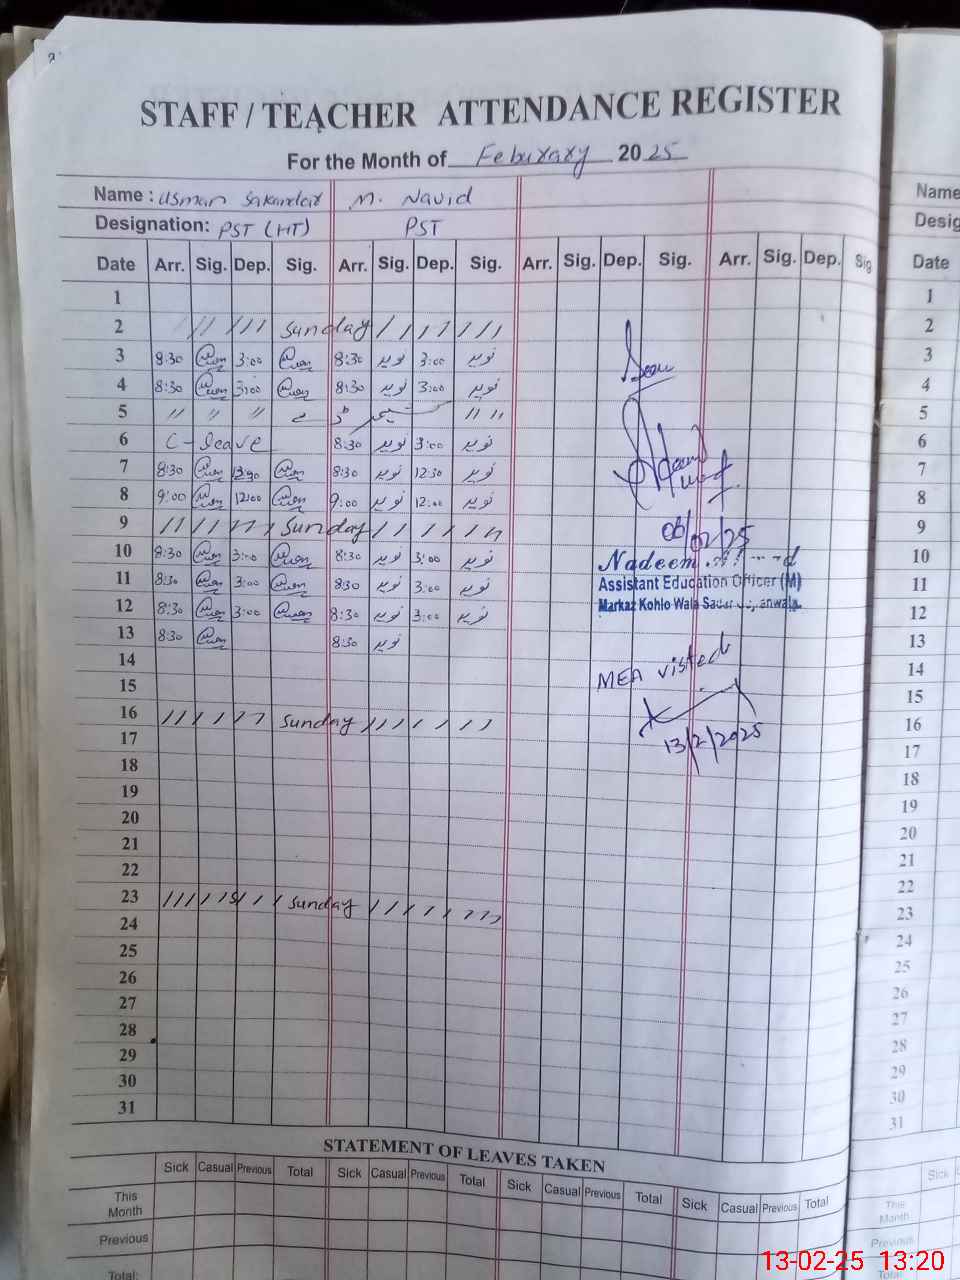 STAFF / TEACHER ATTENDANCE REGISTER
For the Month of Feburary 2025
Name : Usman Sakandar M. Navid Name
Designation: PST (HT) PST Desig
Date Arr. Sig. Dep. Sig. Arr. Sig. Dep. Sig. Arr. Sig. Dep. Sig. Arr. Sig. Dep. Sig Date
1 1
2 / / / / / / Sunday / / / / / / / 2
3 8:30 3:00 8:30 نوید 3:00 نوید 3
4 8:30 3:00 8:30 نوید 3:00 نوید 4
5 〃 〃 〃 〃 〃 5
6 C-leave 8:30 نوید 3:00 نوید 6
7 8:30 8:30 نوید 12:30 نوید 7
8 9:00 12:00 9:00 نوید 12:00 نوید 8
9 / / / / / / / Sunday / / / / / / / 9
10 8:30 3:00 8:30 نوید 3:00 نوید 10
11 8:30 3:00 8:30 نوید 3:00 نوید 11
12 8:30 3:00 8:30 نوید 3:00 نوید 12
13 8:30 8:30 نوید 13
14 14
15 15
16 / / / / / / Sunday / / / / / / / 16
17 17
18 18
19 19
20 20
21 21
22 22
23 / / / / / / / / Sunday / / / / / / / 23
24 24
25 25
26 26
27 27
28 28
29 29
30 30
31 31
06/02/25
Nadeem
Assistant Education Officer (M)
Markaz Kohlo Wala Sadar
MEA visted
13/2/2025
STATEMENT OF LEAVES TAKEN
Sick Casual Previous Total Sick Casual Previous Total Sick Casual Previous Total Sick Casual Previous Total Sick
This Month This Month
Previous Previous
Total: Total
13-02-25 13:20